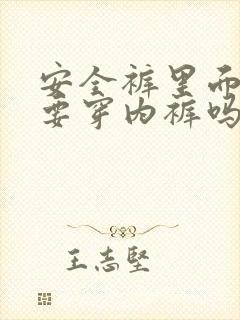 安全裤里而
要穿内裤吗
王志坚